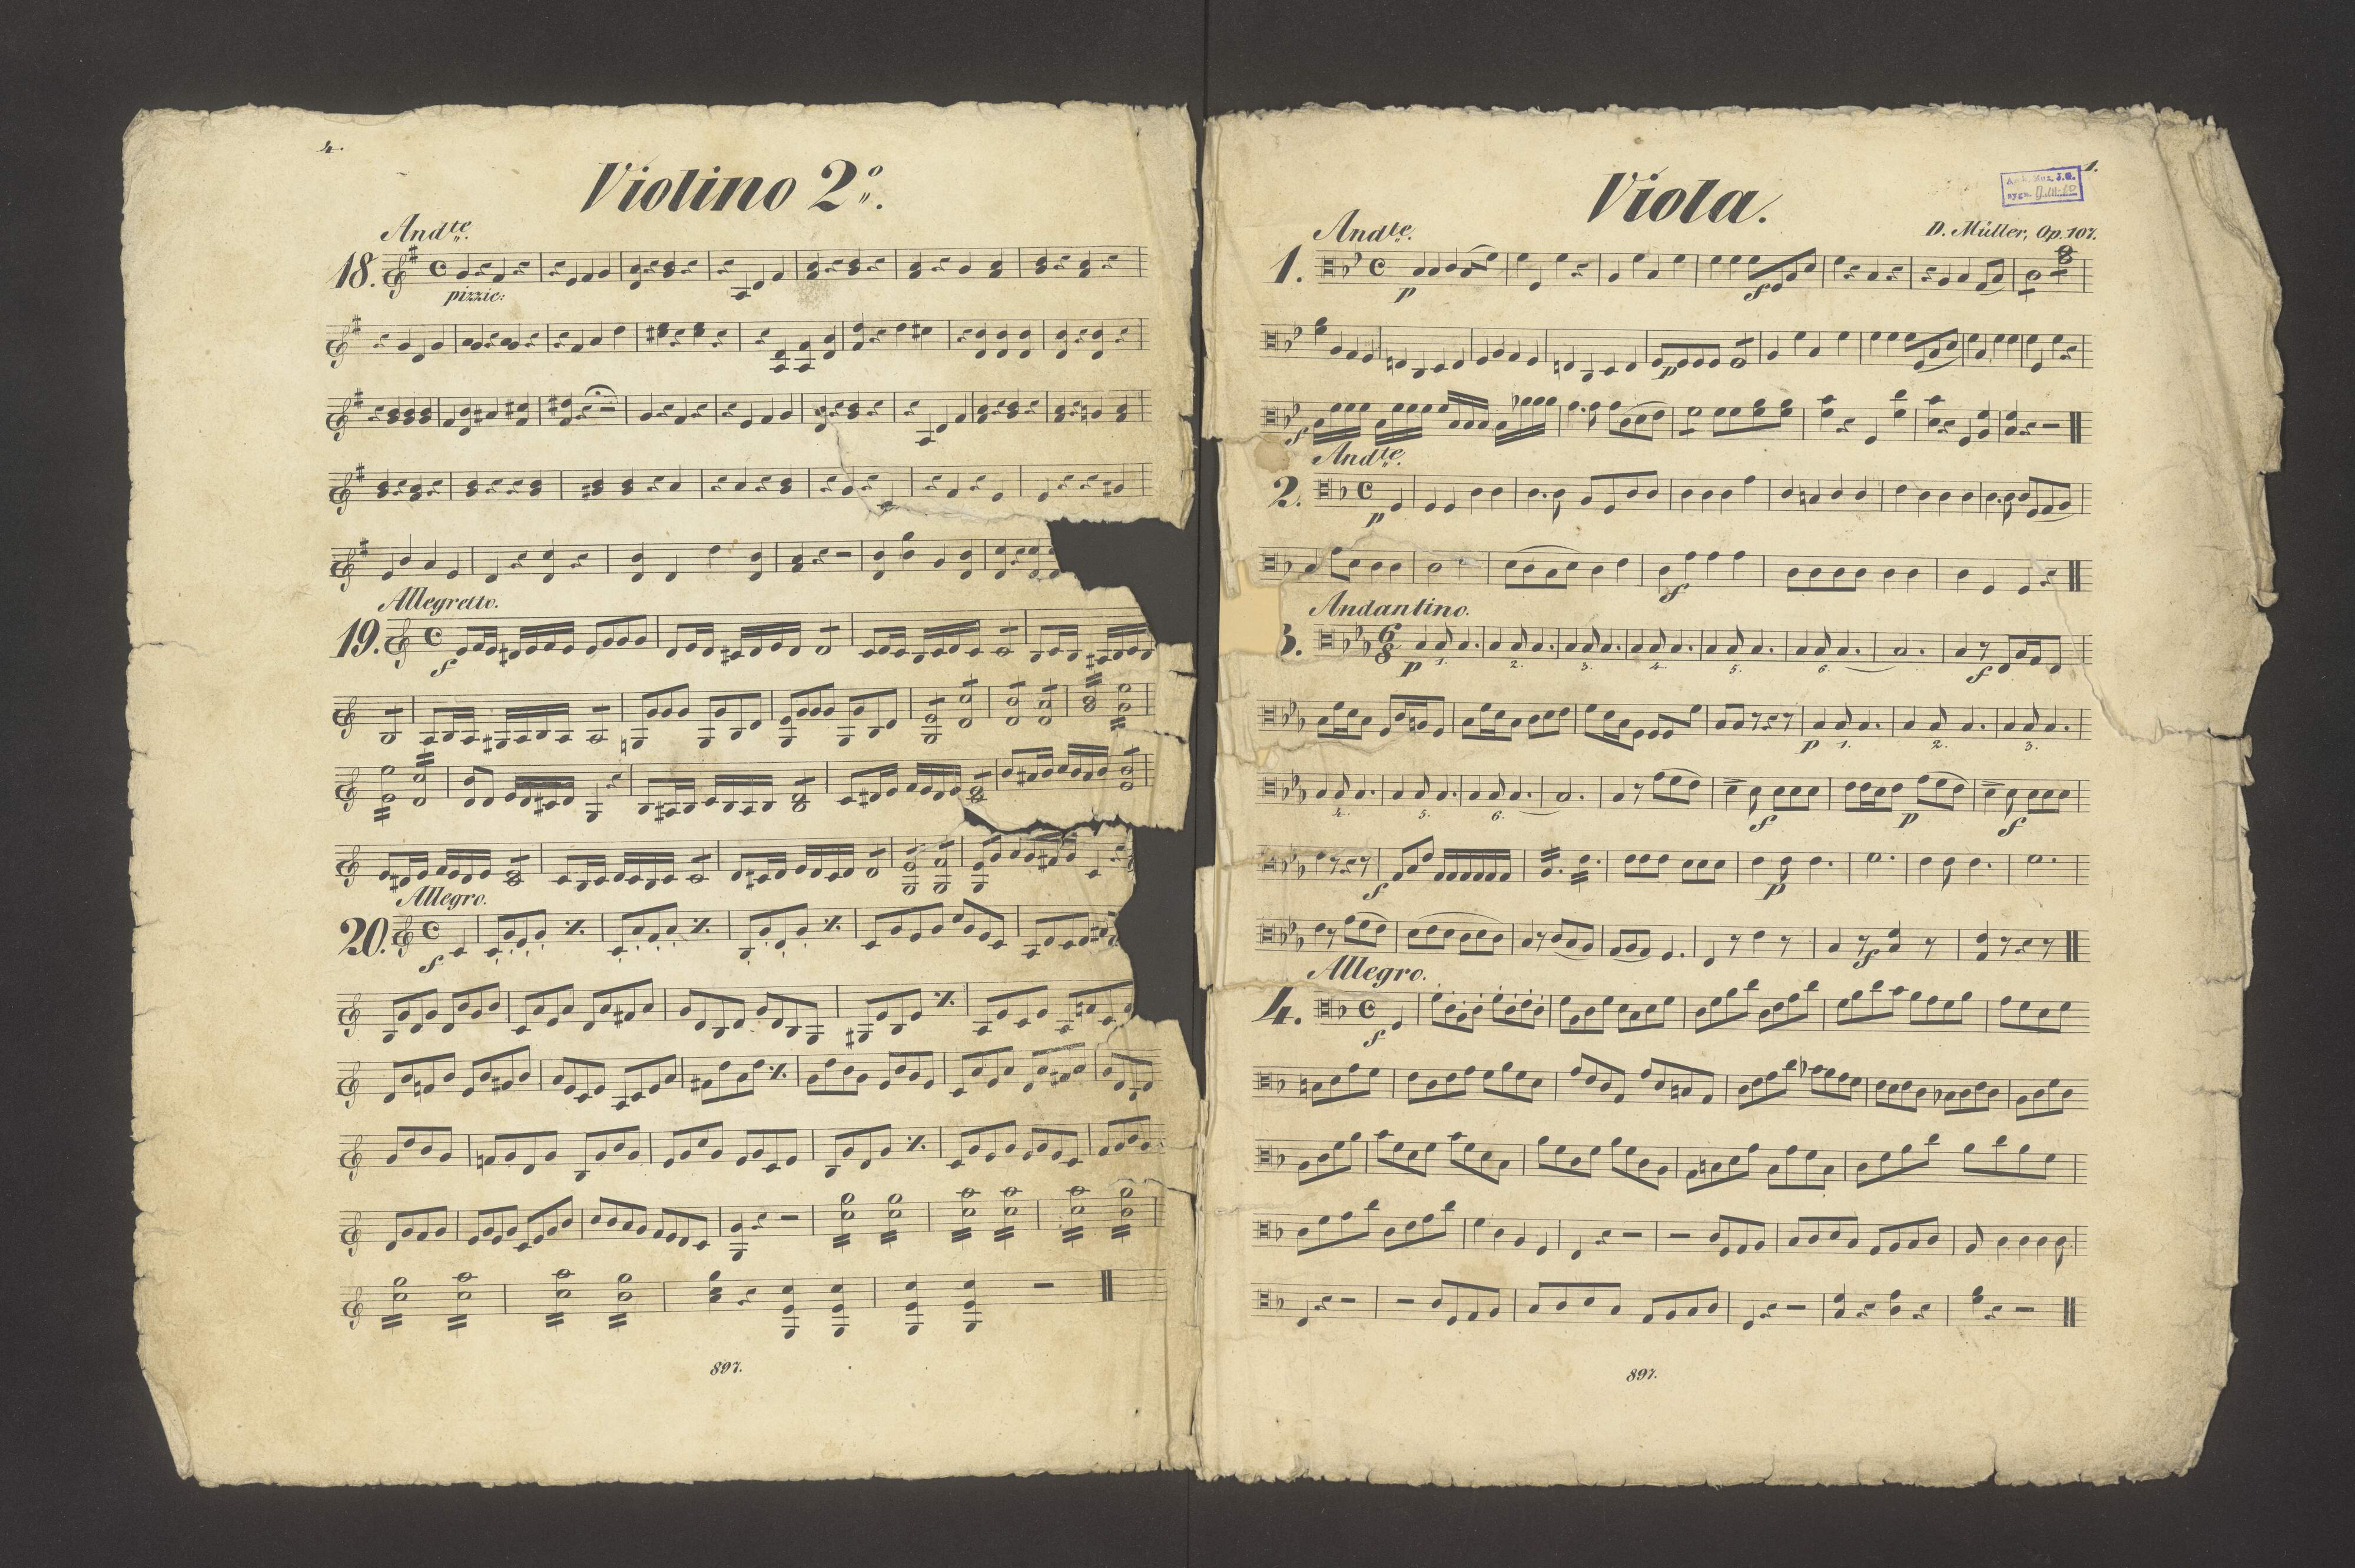 4.
Violino 2º.
Andte.
18.
pizzic:
Allegretto.
19.
f
Allegro.
20.
f
897.
1.
Viola.
D. Müller, Op. 107.
Andte.
1.
p f
p
f
Andte.
2.
p
f
Andantino.
3. 6/8
p 1. 2. 3. 4. 5. 6. f
p 1. 2. 3.
4. 5. 6. f p f
f p
f
Allegro.
4.
f
897.